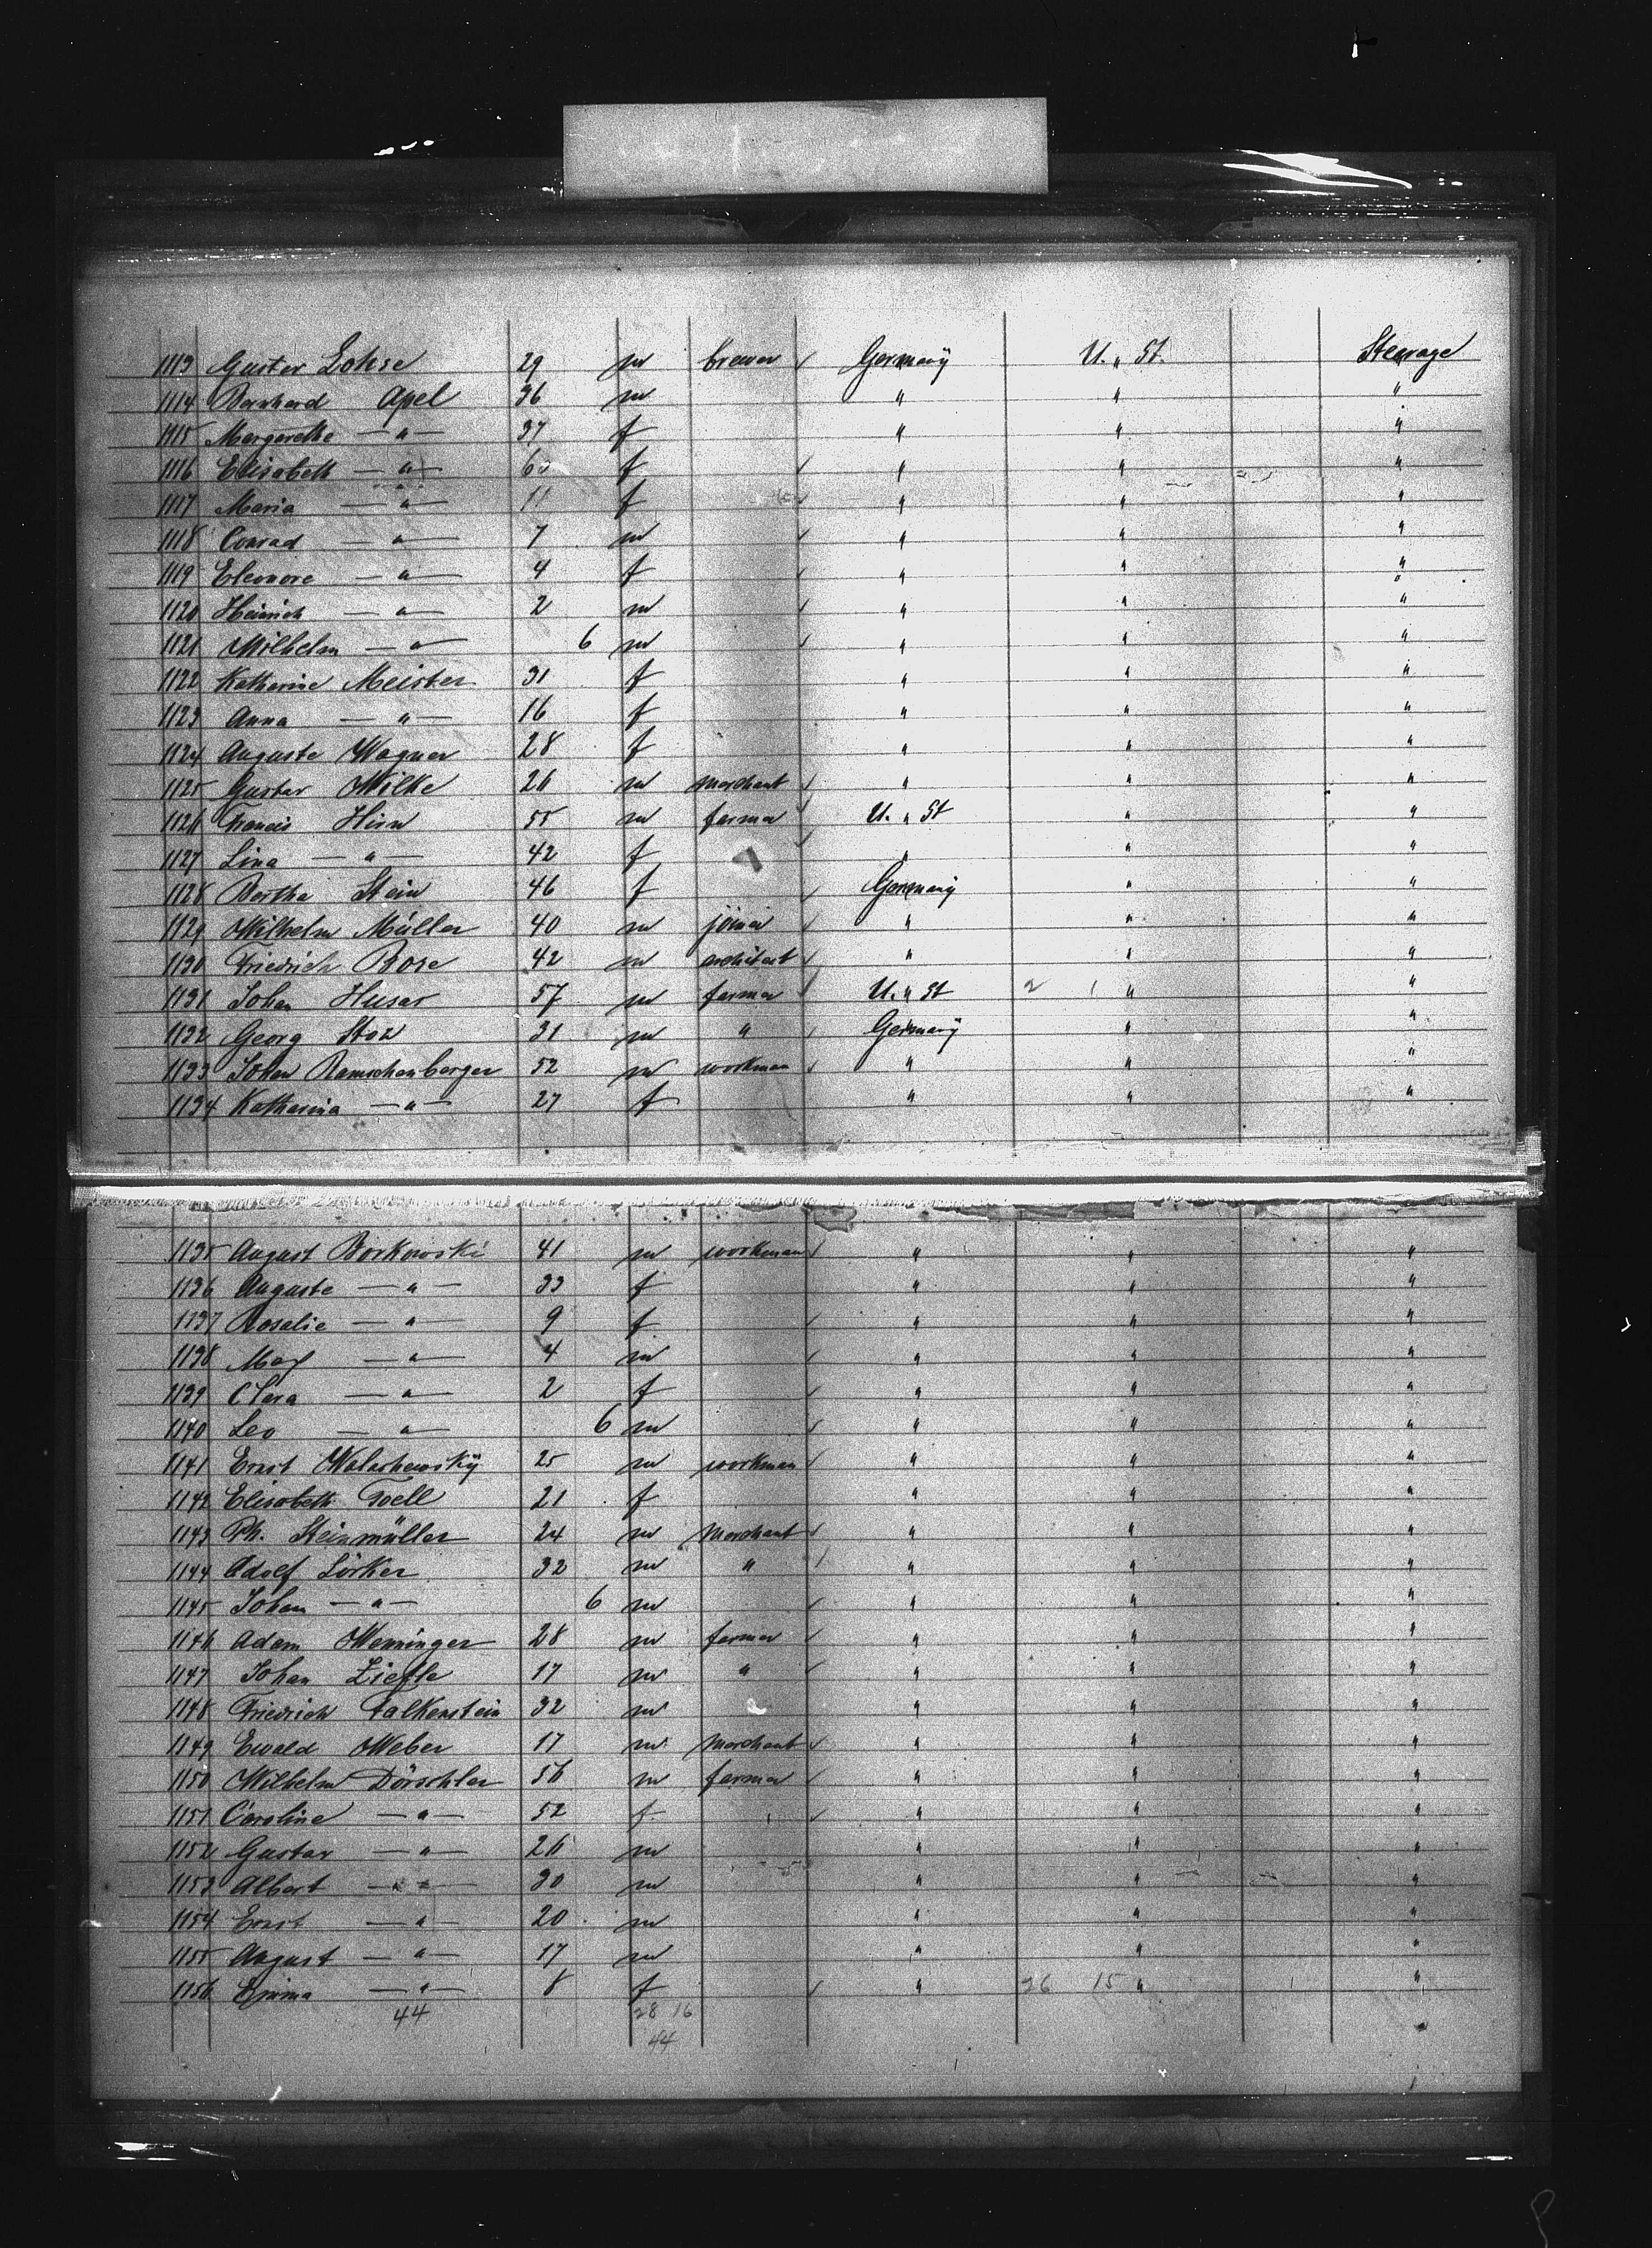 1113 Gustav Lohse 29 m brewer Germany U. " St. Steerage
1114 Bernhard Apel 36 m " " "
1115 Margarethe — " — 37 f " " "
1116 Elisabeth — " — f " " "
1117 Maria — " — 11 f " " "
1118 Conrad — " — 7 m " " "
1119 Eleonore — " — 4 f " " "
1120 Heinrich — " — 2 m " " "
1121 Wilhelm — " — 6 m " " "
1122 Katherine Meister 31 f " " "
1123 Anna — " — 16 f " " "
1124 Auguste Wagner 28 f " " "
1125 Gustav Wilke 26 m merchant " " "
1126 Francis Hirn 55 m farmer U. " St " "
1127 Lina — " — 42 f " " "
1128 Bertha Stein 46 f Germany " "
1129 Wilhelm Müller 40 m joiner " " "
1130 Friedrich Bose 42 m architect " " "
1131 Johan Husar 57 m farmer U. " St 2 1 " "
1132 Georg Stoz 31 m " Germany " "
1133 Johan Ramschenberger 52 m workman " " "
1134 Katharina — " — 27 f " " "
1135 August Borkowski 41 m workman " " "
1136 Auguste — " — 33 f " " "
1137 Rosalie — " — 9 f " " "
1138 Max — " — 4 m " " "
1139 Clara — " — 2 f " " "
1140 Leo — " — 6 m " " "
1141 Ernst Walachewsky 25 m workman " " "
1142 Elisabeth Toell 21 f " " "
1143 Ph. Steinmüller 24 m Merchant " " "
1144 Adolf Lörker 32 m " " " "
1145 Johan — " — 6 m " " "
1146 Adam Wenninger 28 m farmer " " "
1147 Johan Ziefle 17 m " " " "
1148 Friedrich Falkenstein 32 m " " "
1149 Ewald Weber 17 m Merchant " " "
1150 Wilhelm Dörschler 56 m farmer " " "
1151 Caroline — " — 52 f " " "
1152 Gustav — " — 26 m " " "
1153 Albert — " — 30 m " " "
1154 Ernst — " — 20 m " " "
1155 August — " — 17 m " " "
1156 Emma — " — 8 f " 26 15 " "
44 28 16
44